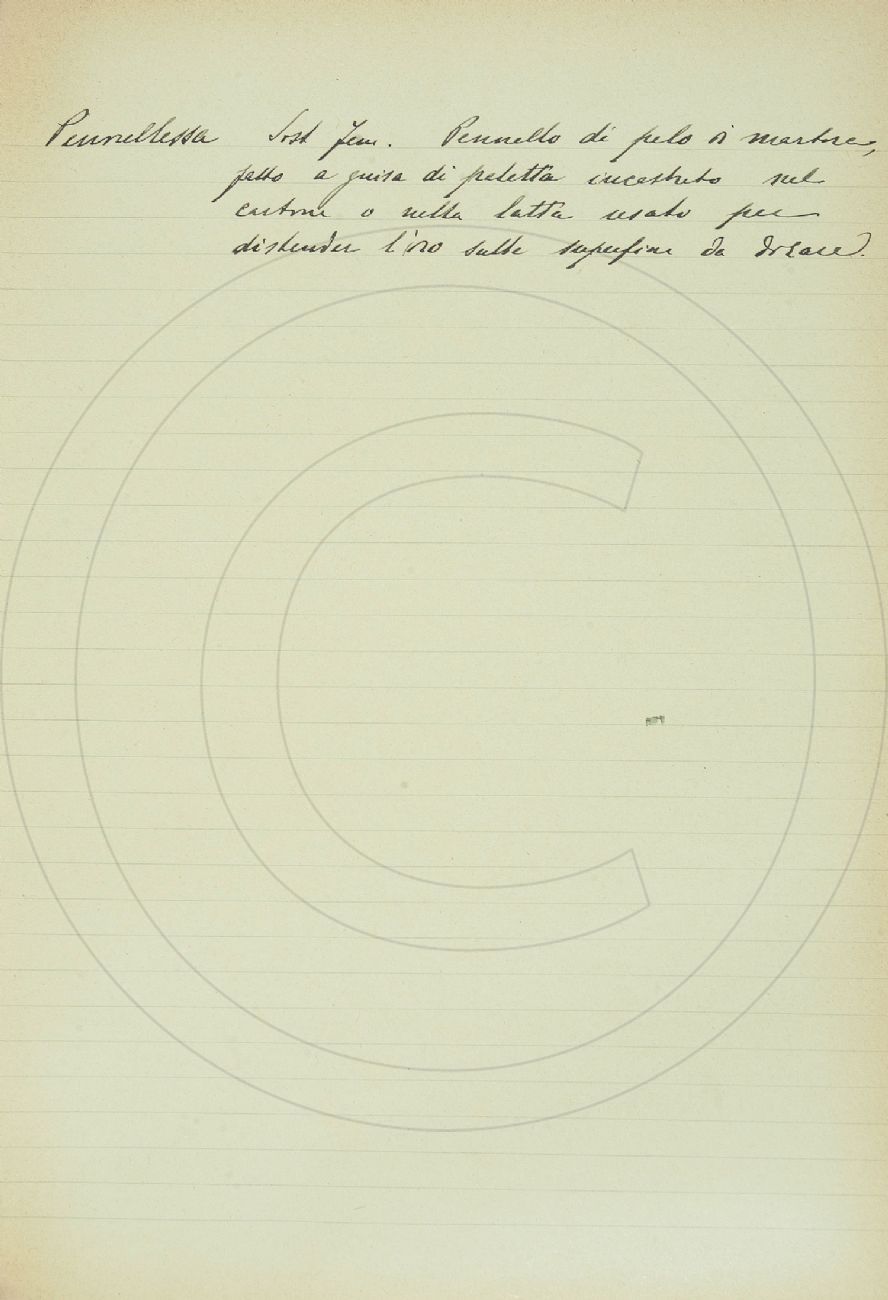 Pennellessa Sost fem. Pennello di pelo di martore,
fatto a guisa di paletta incastrato nel
cartone o nella latta usato per
distender l'oro sulle superfine da dorare.